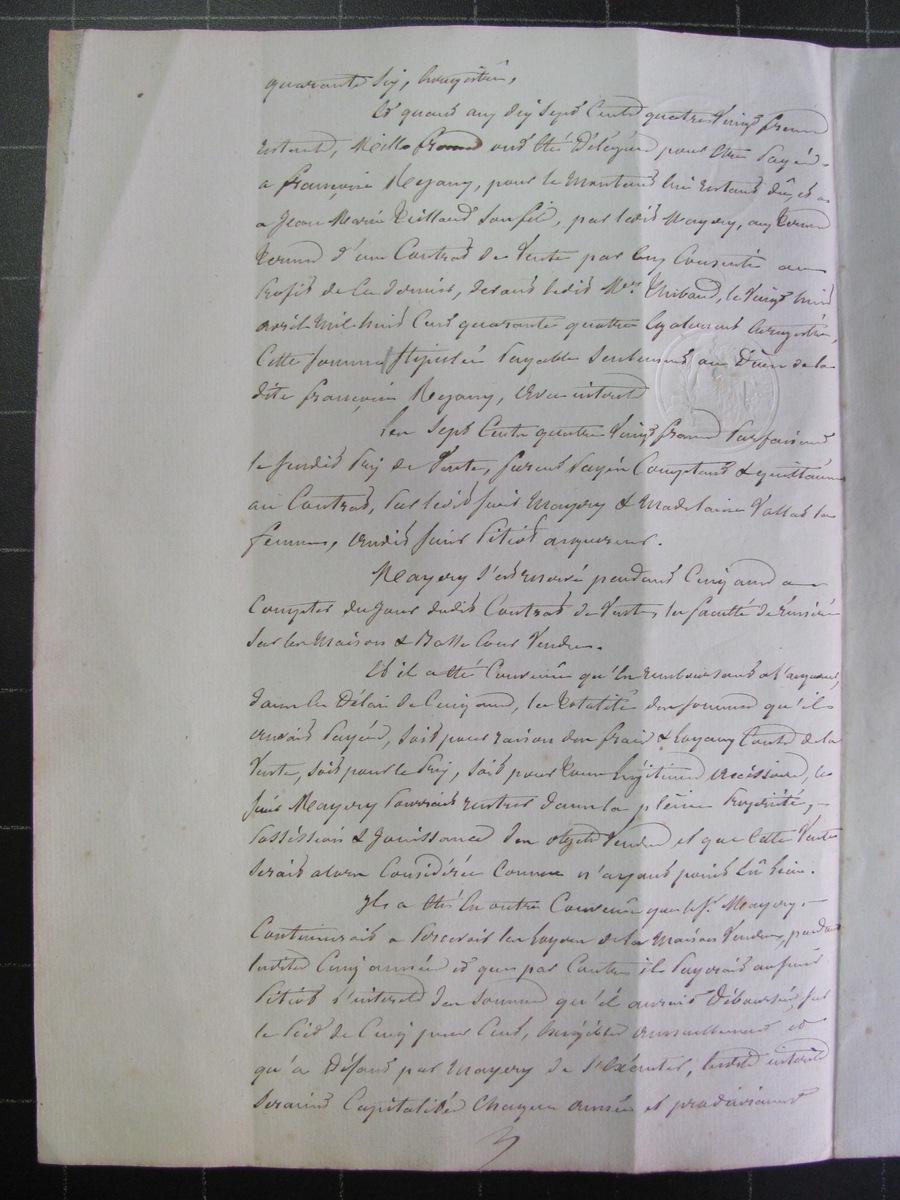 quarante six, enregistré,
Et quant aux dix sept cents quatre vingt francs
restant, Mille francs ont été délégués pour être payés
a françoise Mezany, pour le montant lui restant dû, et
a Jean Marie son fils, par ledit Mayery, aux
termes d'un Contrat de Vente par eux Consenti au
profit de ce dernier, devant ledit Mtre Thibaud, le vingt huit
avril mil huit cent quarante quatre également enregistré,
Cette somme stipulée payable seulement au décès de la
dite françoise Mezany, avec intérêts
Les sept Cents quatre vingt francs parfaisant
le susdit prix de Vente, furent payés Comptant & quittancés
au Contrat, par ledit sieur Mayery & Madelaine Vallas sa
femme, audit sieur Pitiot acquereur.
Mayery s'est reservé pendant Cinq ans a
Compter du jour dudit Contrat de Vente, la faculté de réméré
sur les Maison & Basse Cour Vendus.
Et il a été Convenu qu'en remboursant a l'acquereur,
dans le délai de Cinq ans, la totalité des sommes qu'il
aurait payés, soit pour raison des frais & loyaux Couts de la
Vente, soit pour le prix, soit pour tous légitimes accéssoires, le
sieur Mayery pourrait rentrer dans la pleine propriété,
posséssion & jouissance des objets Vendus et que Cette Vente
serait alors Considérée Comme n'ayant point eû lieu.
Il a été en outre Convenu que le sr. Mayery
Continuerait a percevoir les loyers de la Maison Vendue, pendant
lesdites Cinq années et que par Contre il payerait au sieur
Pitiot l'intérêt des sommes qu'il aurait déboursées, sur
le pied de Cinq pour Cent, exigible annuellement et
qu'a défaut par Mayery de s'éxécuter, lesdits intérêts
seraient Capitalisés Chaque année et produiraient